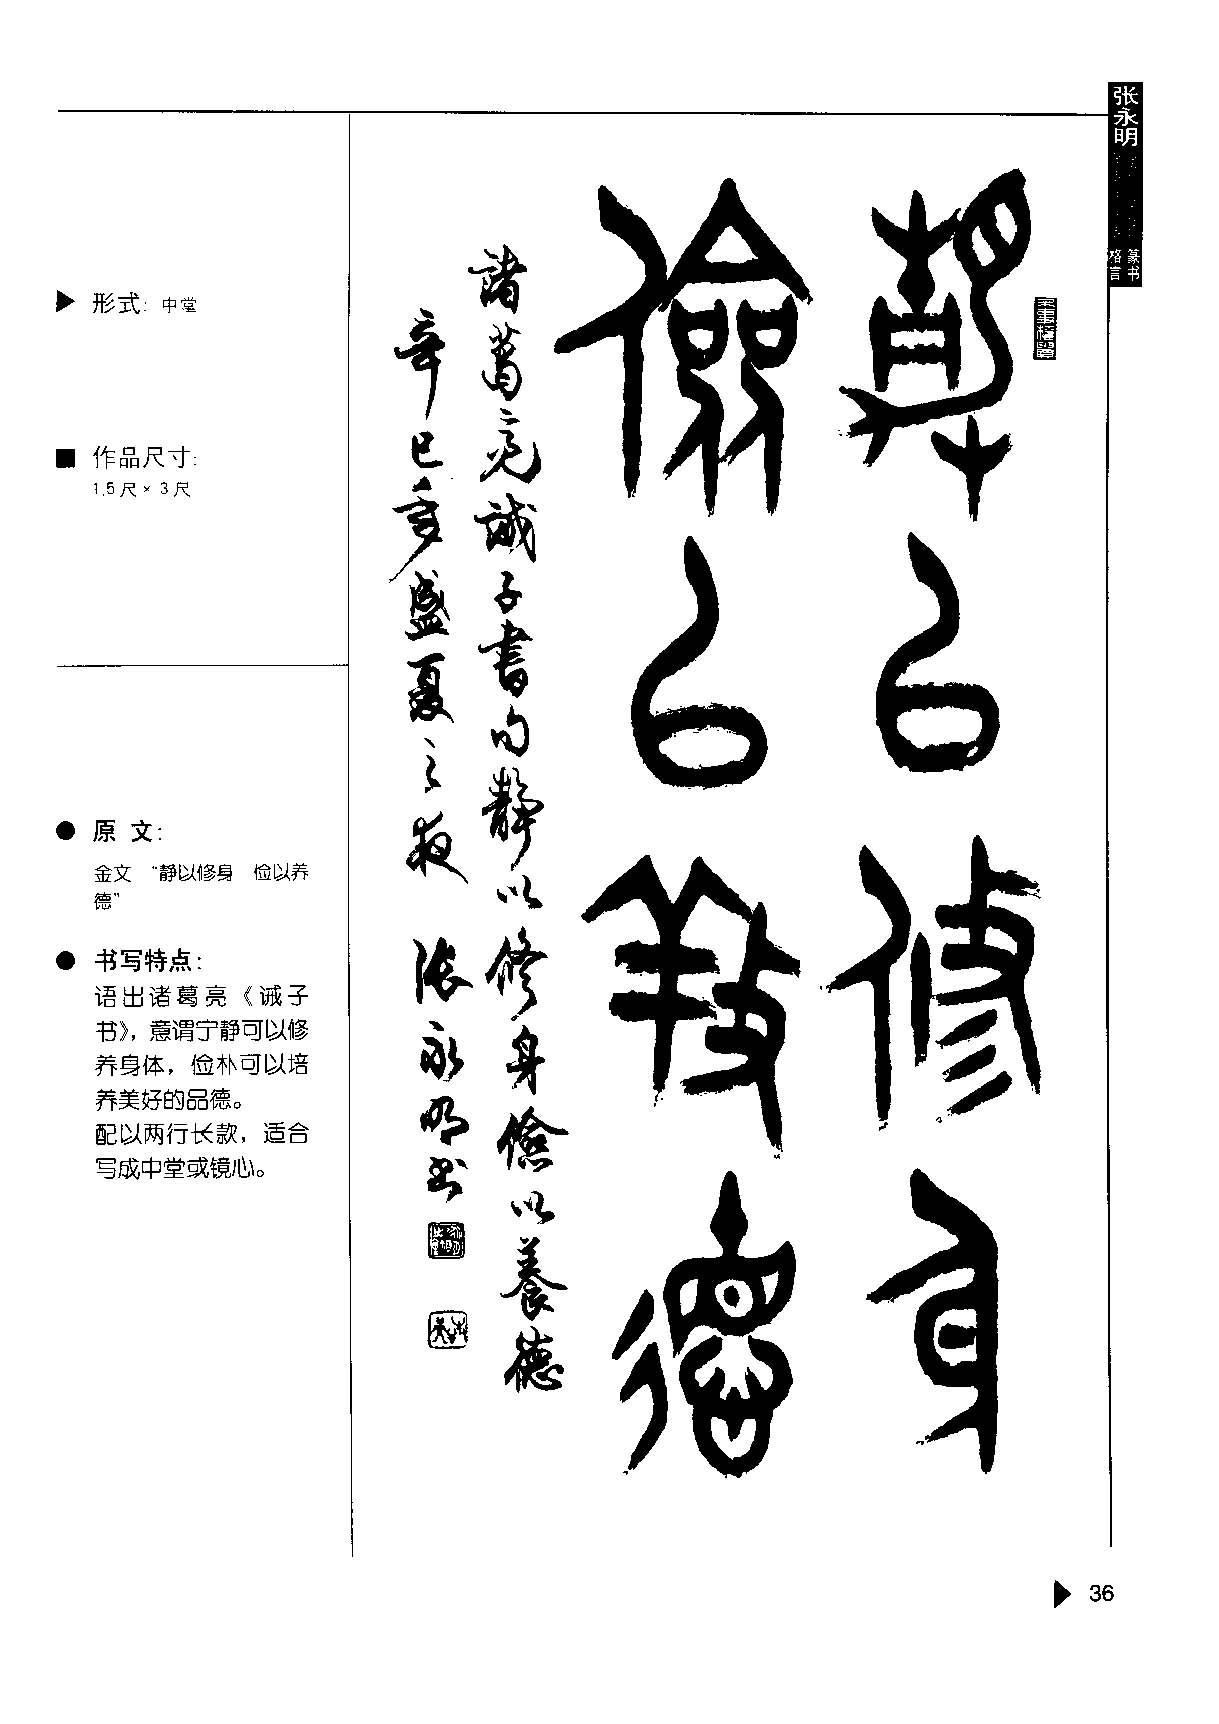 张永明
篆书
格言
靜以修身
儉以養德
諸葛亮誡子書句靜以修身儉以養德
辛巳年盛夏之夜 張永明书
形式: 中堂
作品尺寸:
1.5尺 × 3尺
原 文:
金文 “静以修身 俭以养
德”
书写特点:
语出诸葛亮《诫子
书》，意谓宁静可以修
养身体，俭朴可以培
养美好的品德。
配以两行长款，适合
写成中堂或镜心。
36